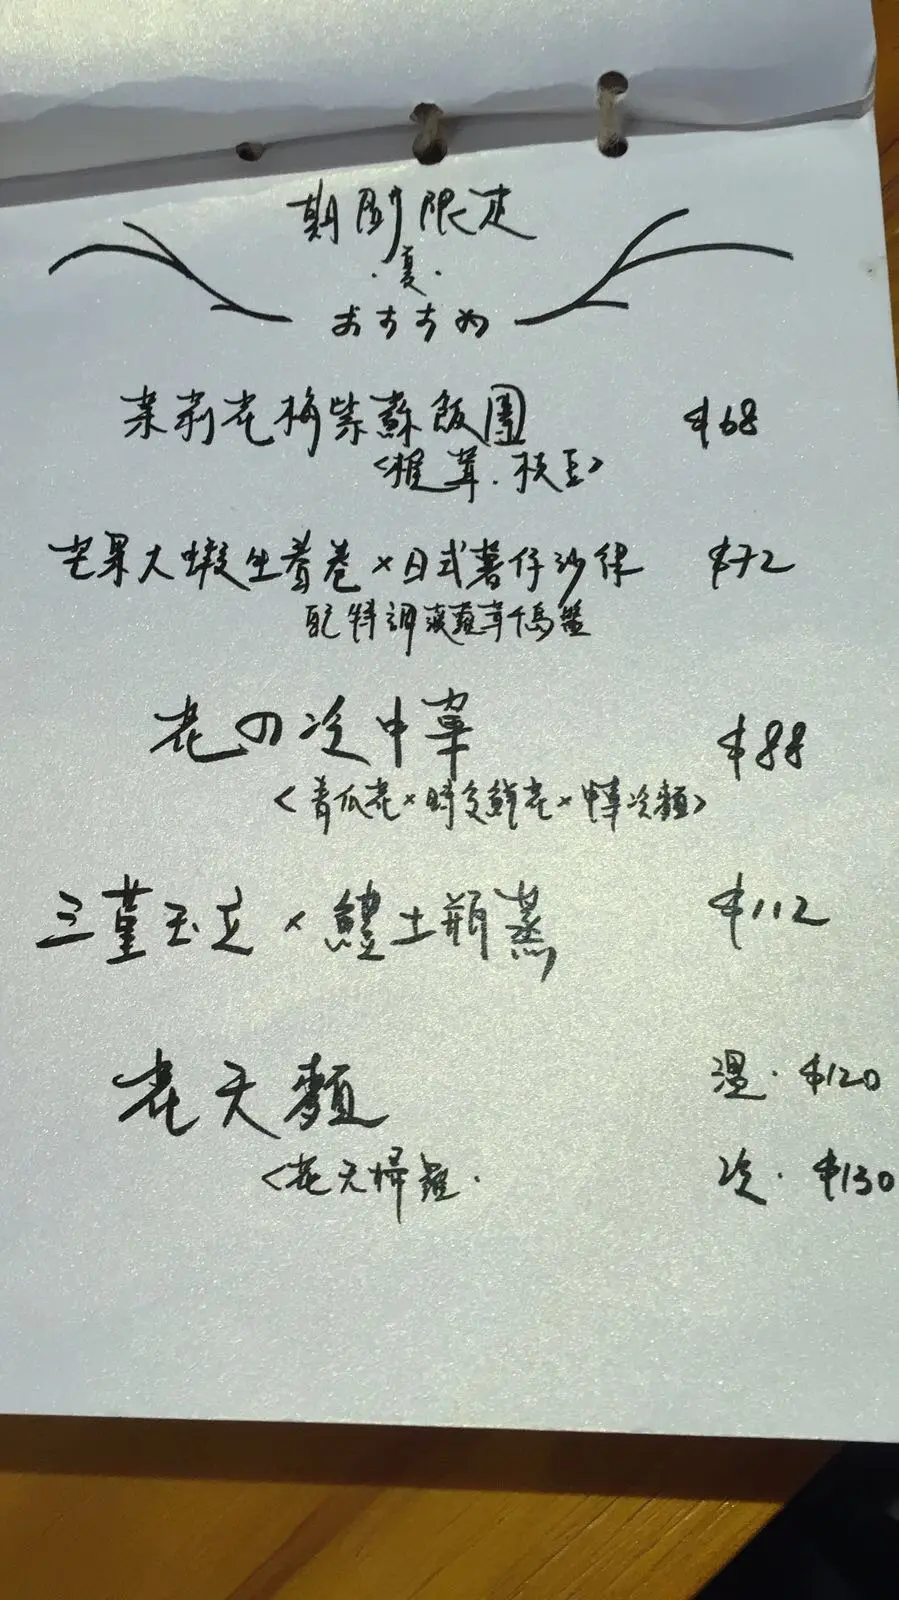 期間限定
·夏·
おすすめ
茉莉花梅紫蘇飯團 $68
<椎茸.枝豆>
芒果大蝦生春卷×日式薯仔沙律 $72
配特調菠蘿芥末醬
花の冷中華 $88
<青瓜花×時令鮮花×中華冷麵>
三葷玉立×鱧土瓶蒸 $112
花天麵 温·$120
<花天婦羅· 冷·$130